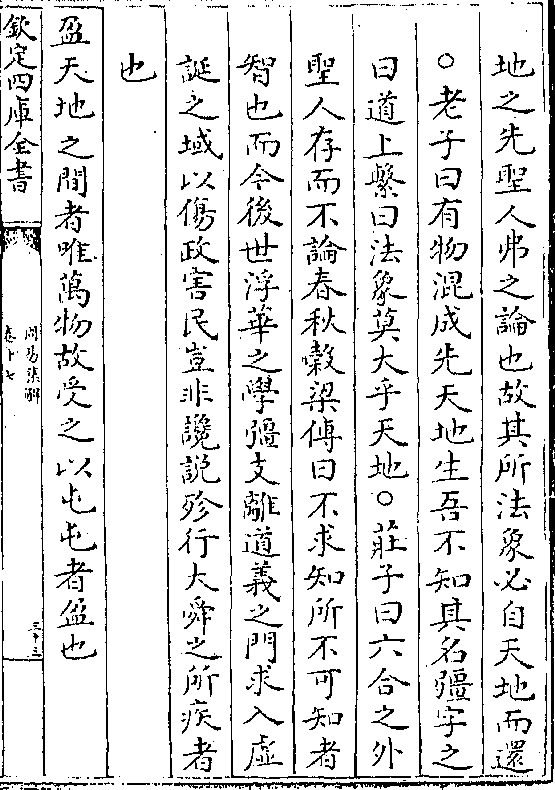 地之先聖人弗之論也故其所法象必自天地而還
○老子曰有物混成先天地生吾不知其名彊字之
曰道上繫曰法象莫大乎天地○莊子曰六合之外
聖人存而不論春秋穀梁傳曰不求知所不可知者
智也而今後世浮華之學彊支離道義之門求入虛
誕之域以傷政害民豈非讒說殄行大舜之所疾者
也
盈天地之間者唯萬物故受之以屯屯者盈也
欽定四庫全書
周易集解
卷十七
三十三